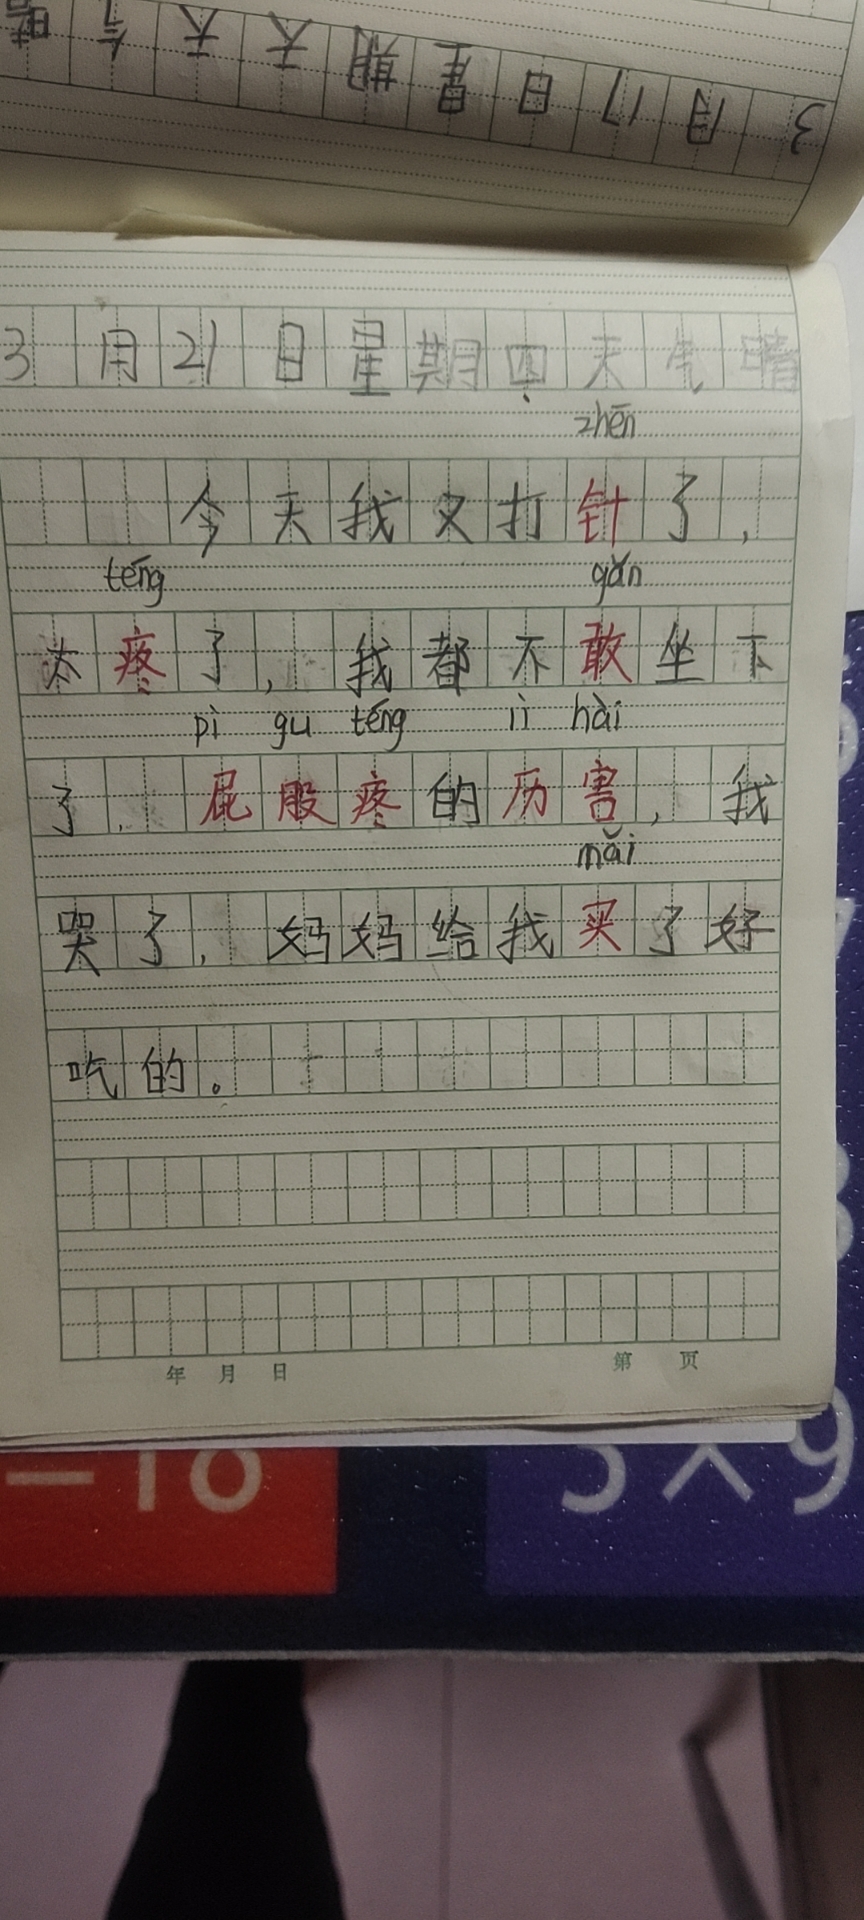 3月17日星期天天气晴
3月21日星期四天气晴
zhēn
今天我又打针了，
téng gǎn
太疼了，我都不敢坐下
pì gu téng lì hài
了，屁股疼的历害，我
mǎi
哭了，妈妈给我买了好
吃的。
年 月 日 第 页
-18 5×9